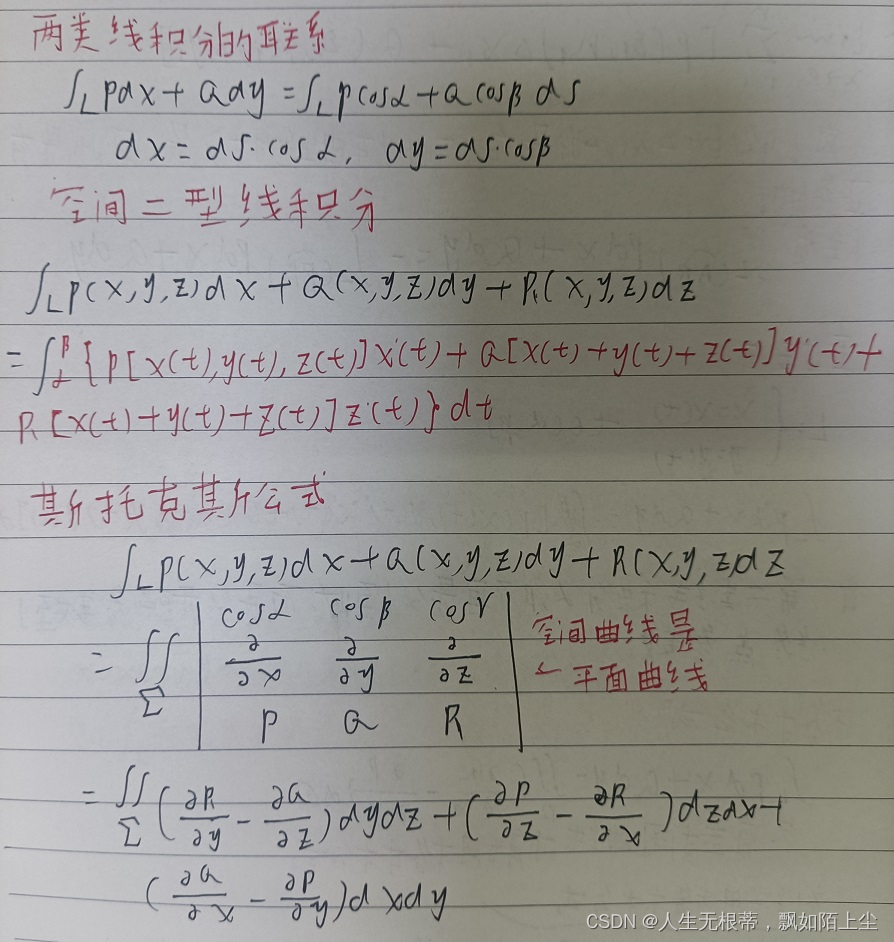 两类线积分的联系
∫_L Pdx + Qdy = ∫_L Pcosα + Qcosβ ds
dx = ds·cosα, dy = ds·cosβ
空间二型线积分
∫_L P(x,y,z)dx + Q(x,y,z)dy + R(x,y,z)dz
= ∫_α^β {P[x(t),y(t),z(t)]x'(t) + Q[x(t)+y(t)+z(t)]y'(t)+
R[x(t)+y(t)+z(t)]z'(t)}dt
斯托克斯公式
∫_L P(x,y,z)dx + Q(x,y,z)dy + R(x,y,z)dz
= ∬_Σ | cosα cosβ cosγ |
| ∂/∂x ∂/∂y ∂/∂z |
| P Q R |
空间曲线是
个平面曲线
= ∬_Σ (∂R/∂y - ∂Q/∂z)dydz + (∂P/∂z - ∂R/∂x)dzdx+
(∂Q/∂x - ∂P/∂y)dxdy
CSDN @人生无根蒂，飘如陌上尘